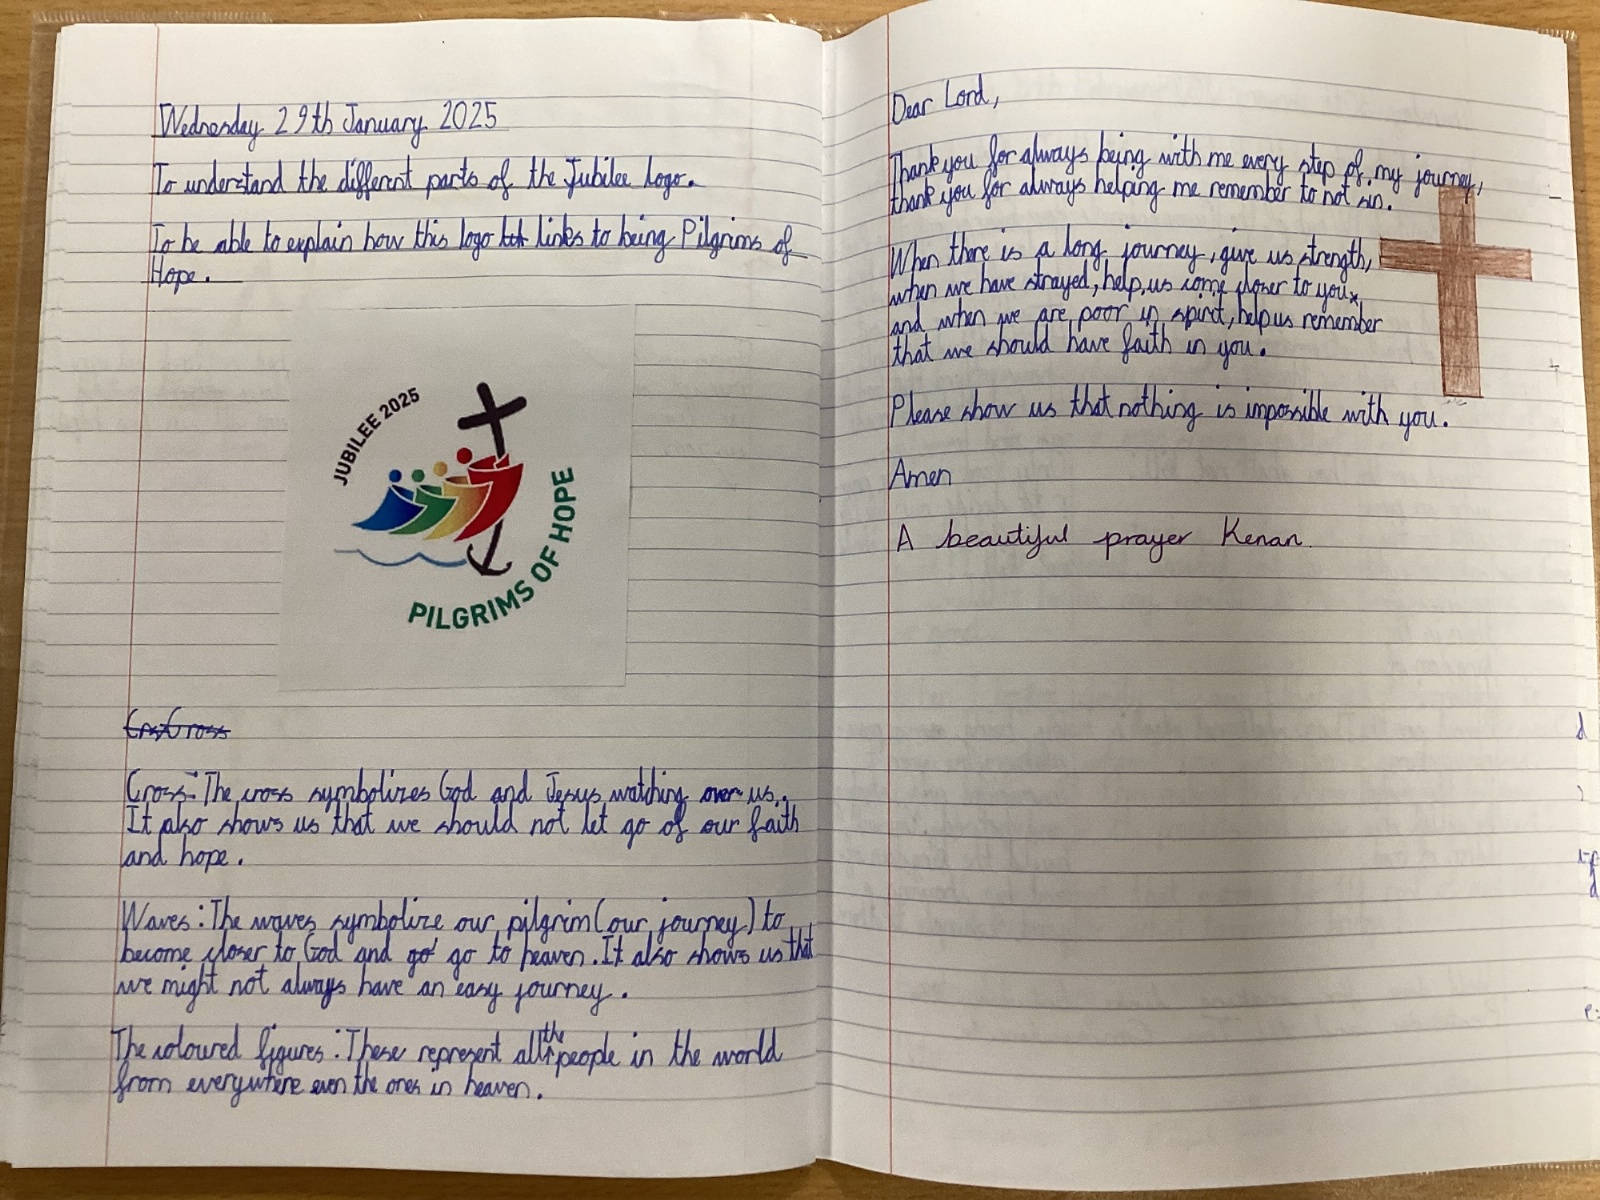 Wednesday 29th January 2025
To understand the different parts of the Jubilee logo.
To be able to explain how this logo links to being Pilgrims of
Hope.
JUBILEE 2025
PILGRIMS OF HOPE
Cross
Cross: The cross symbolizes God and Jesus watching over us.
It also shows us that we should not let go of our faith
and hope.
Waves: The waves symbolize our pilgrim (our journey) to
become closer to God and go go to heaven. It also shows us that
we might not always have an easy journey.
The coloured figures: These represent all the people in the world
from everywhere even the ones in heaven.
Dear Lord,
Thank you for always being with me every step of my journey,
thank you for always helping me remember to not sin.
When there is a long journey, give us strength,
when we have strayed, help us come closer to you,
and when we are poor in spirit, help us remember
that we should have faith in you.
Please show us that nothing is impossible with you.
Amen
A beautiful prayer Kenan.